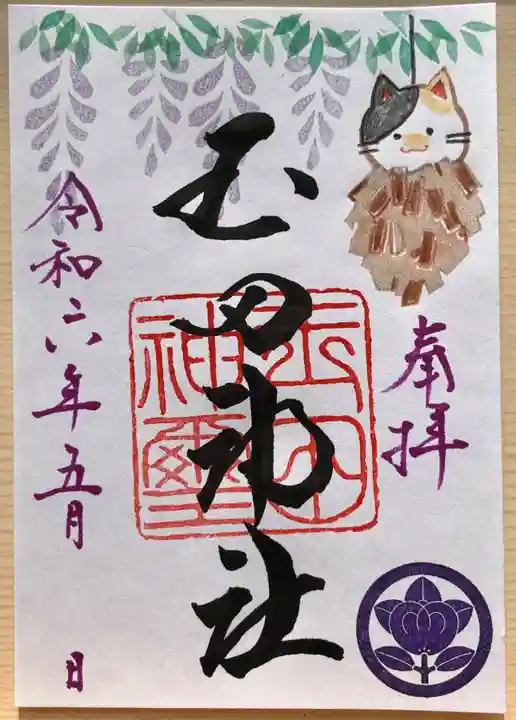 奉拝
玉田神社
玉田神璽
令和六年五月 日